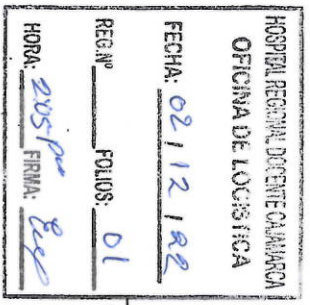 HOSPITAL REGIONAL DOCENTE CAJAMARCA
OFICINA DE LOGISTICA
FECHA: 02 / 12 / 22
REG.Nº FOLIOS: 01
HORA: 2:05 pm FIRMA: